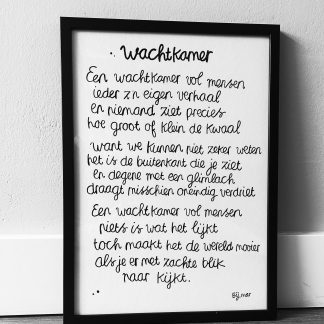 Wachtkamer
Een wachtkamer vol mensen
ieder z'n eigen verhaal
en niemand ziet precies
hoe groot of klein de kwaal
want we kunnen niet zeker weten
het is de buitenkant die je ziet
en degene met een glimlach
draagt misschien oneindig verdriet
Een wachtkamer vol mensen
niets is wat het lijkt
toch maakt het de wereld mooier
als je er met zachte blik
naar kijkt.
Bij.mar